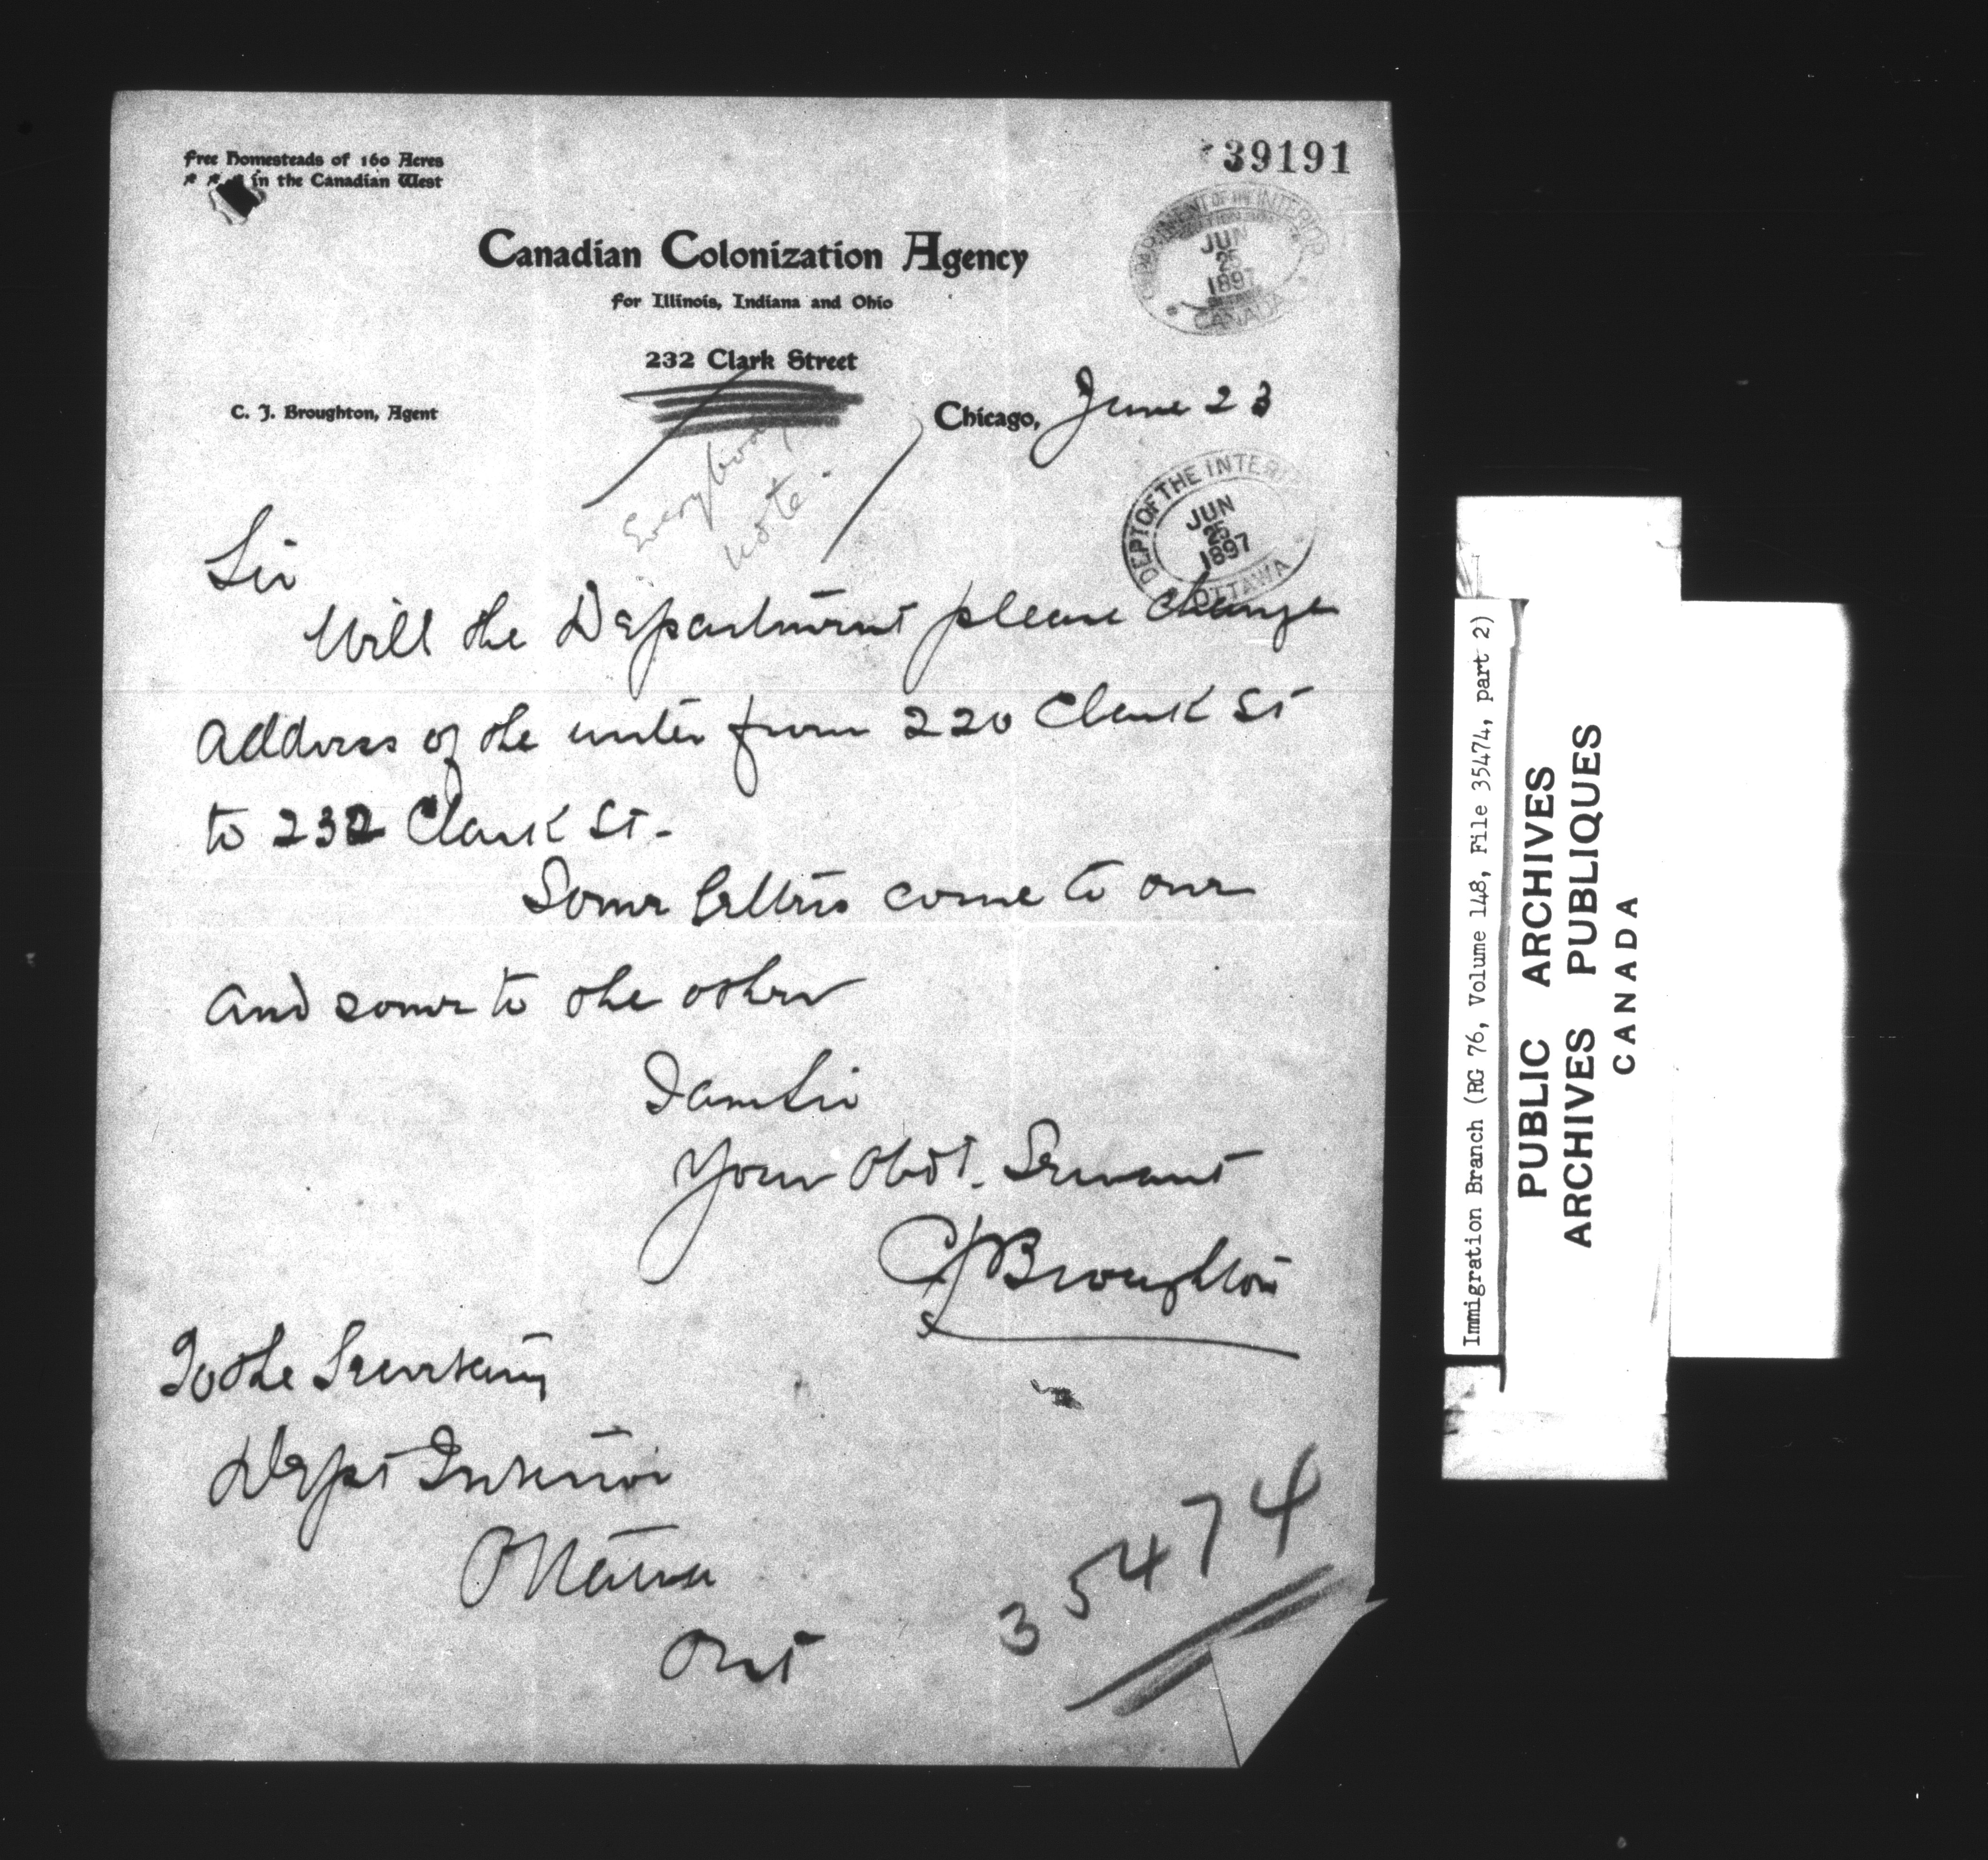 Free Homesteads of 160 Acres
in the Canadian West
39191
Canadian Colonization Agency
for Illinois, Indiana and Ohio
DEPARTMENT OF THE INTERIOR
JUN
25
1897
CANADA
232 Clark Street
C. J. Broughton, Agent
Chicago, June 23
Everybody
note.
DEPT OF THE INTERIOR
JUN
25
1897
OTTAWA
Sir
Will the Department please change
address of the writer from 220 Clark St
to 232 Clark St.
Some letters come to one
and some to the other
I am Sir
Your Obdt. Servant
CJ Broughton
To the Secretary
Dept Interior
Ottawa
Ont
35474
Immigration Branch (RG 76, Volume 148, File 35474, part 2)
PUBLIC ARCHIVES
ARCHIVES PUBLIQUES
CANADA